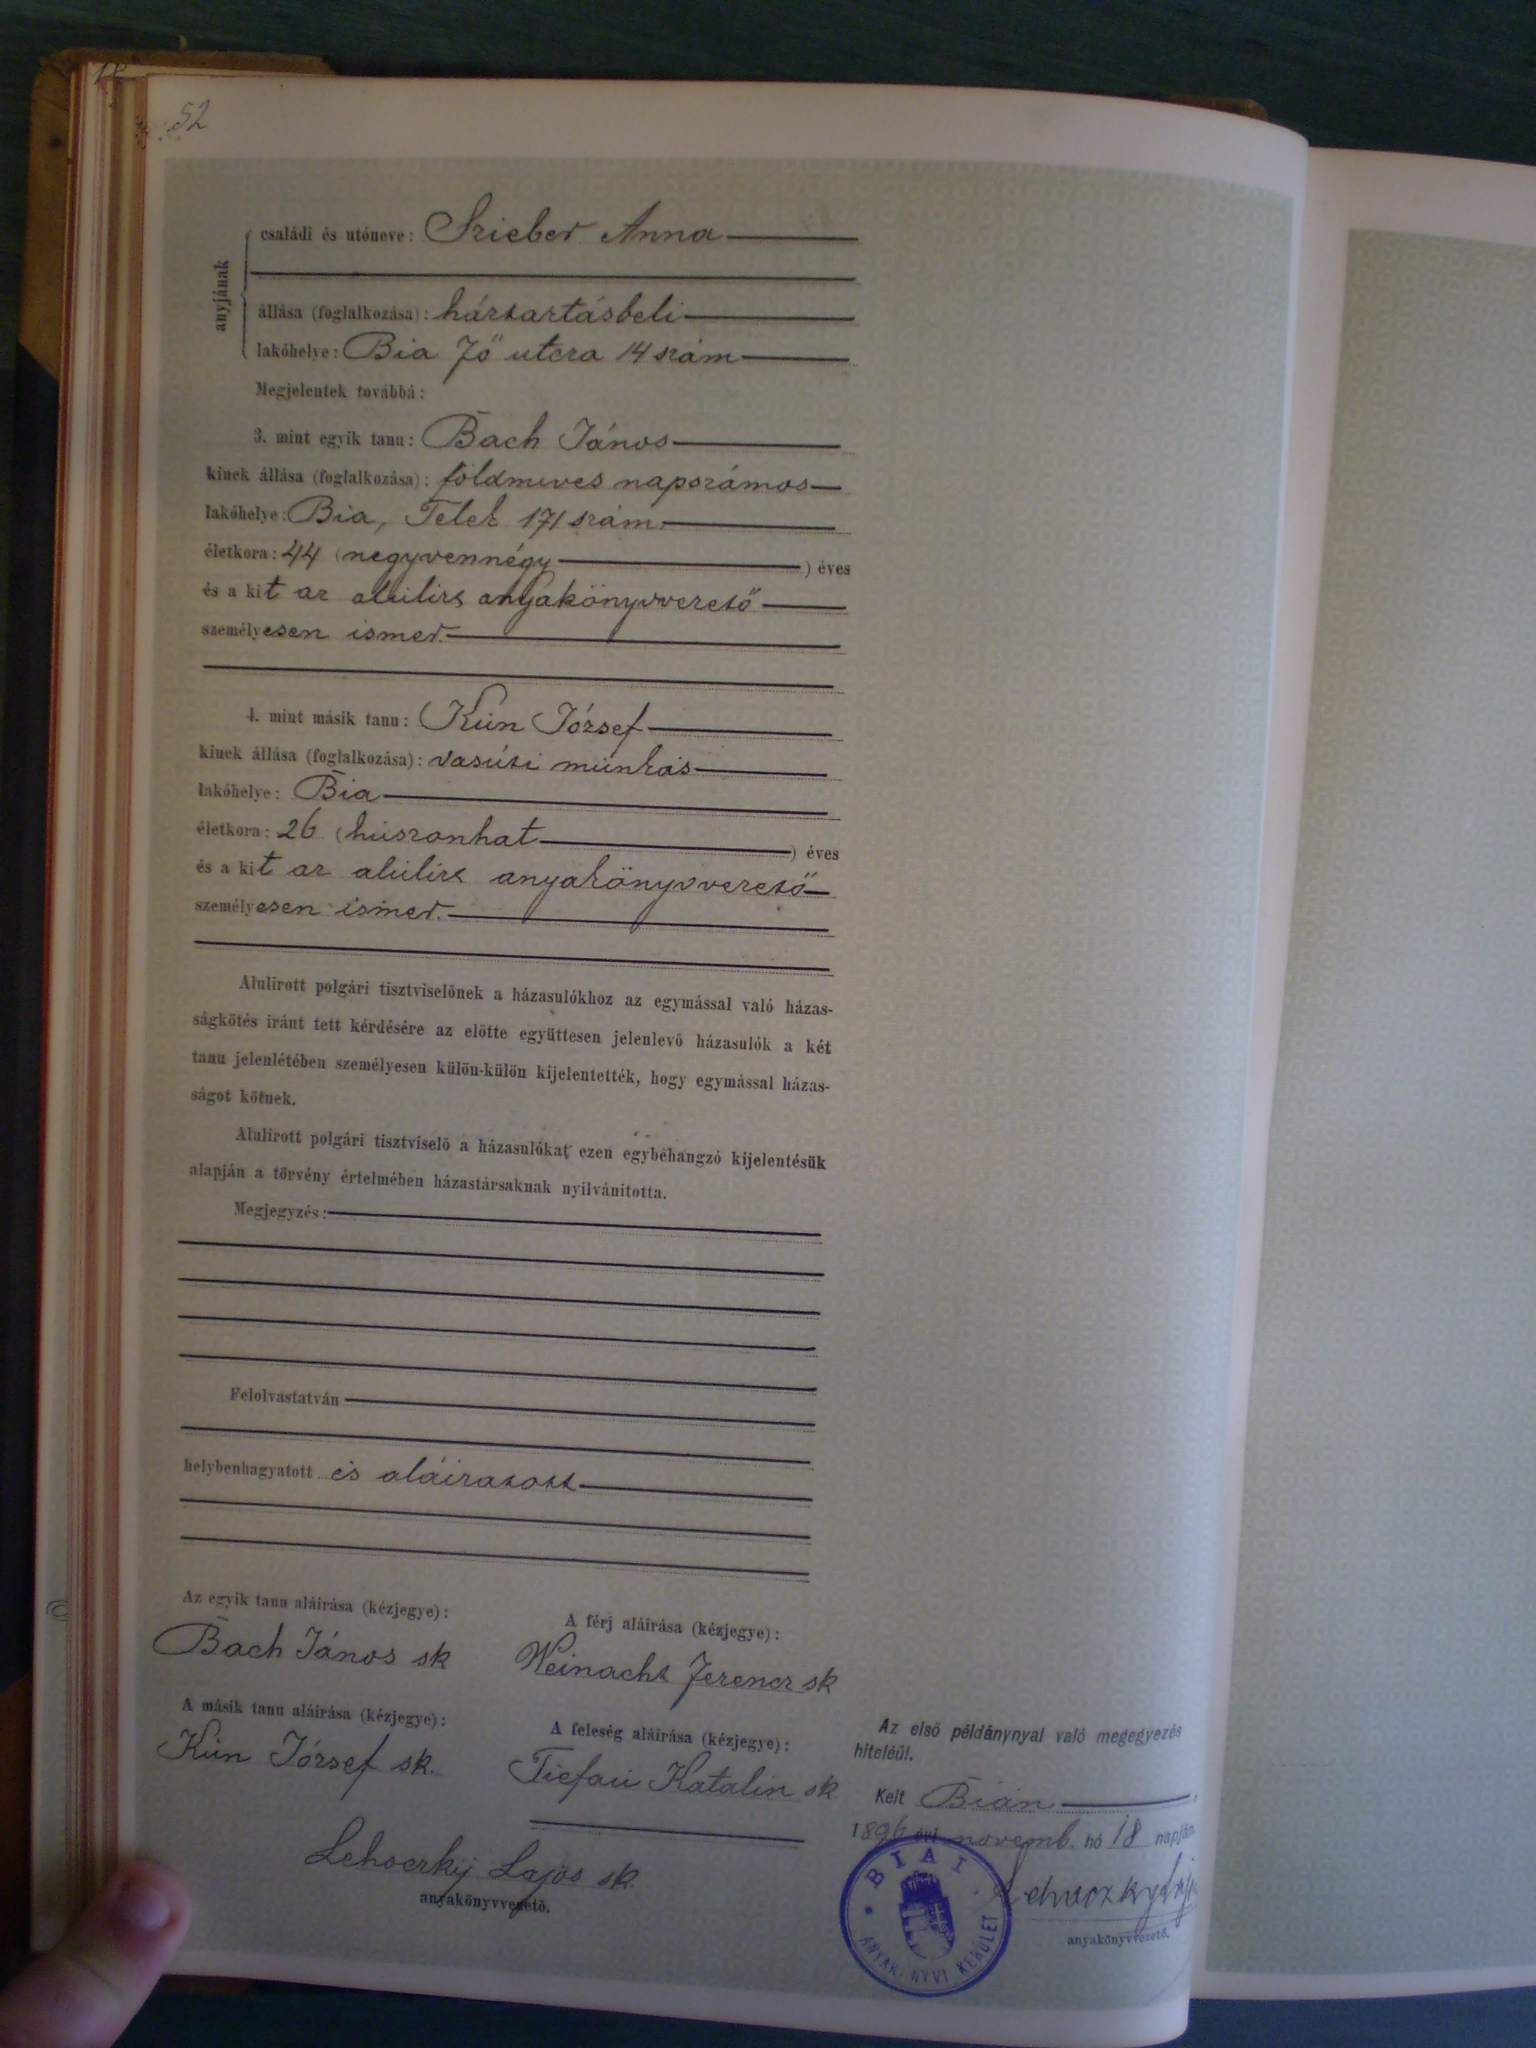 52
anyjának
családi és utóneve: Szieber Anna
állása (foglalkozása): háztartásbeli
lakóhelye: Bia Fő utcza 14 szám
Megjelentek továbbá:
3. mint egyik tanu: Bach János
kinek állása (foglalkozása): földmives napszámos
lakóhelye: Bia, Telek 171 szám
életkora: 44 (negyvennégy) éves
és a kit az alulirt anyakönyvvezető
személyesen ismer.
4. mint másik tanu: Kun József
kinek állása (foglalkozása): vasúti munkás
lakóhelye: Bia
életkora: 26 (huszonhat) éves
és a kit az alulirt anyakönyvvezető
személyesen ismer.
Alulirott polgári tisztviselőnek a házasulókhoz az egymással való házas-
ságkötés iránt tett kérdésére az előtte együttesen jelenlevő házasulók a két
tanu jelenlétében személyesen külön-külön kijelentették, hogy egymással házas-
ságot kötnek.
Alulirott polgári tisztviselő a házasulókat ezen egybehangzó kijelentésük
alapján a törvény értelmében házastársaknak nyilvánitotta.
Megjegyzés:
Felolvastatván
helybenhagyatott és aláiratott
Az egyik tanu aláirása (kézjegye): A férj aláirása (kézjegye):
Bach János sk Weinacht Ferencz sk
A másik tanu aláirása (kézjegye): A feleség aláirása (kézjegye):
Kun József sk. Tiefau Katalin sk
Lehoczky Lajos sk.
anyakönyvvezető.
Az első példánynyal való megegyezés
hiteléül.
Kelt Bián
1896 évi novemb. hó 18 napján
Lehoczky Laj
anyakönyvvezető.
BIAI
ANYAKÖNYVI KERÜLET